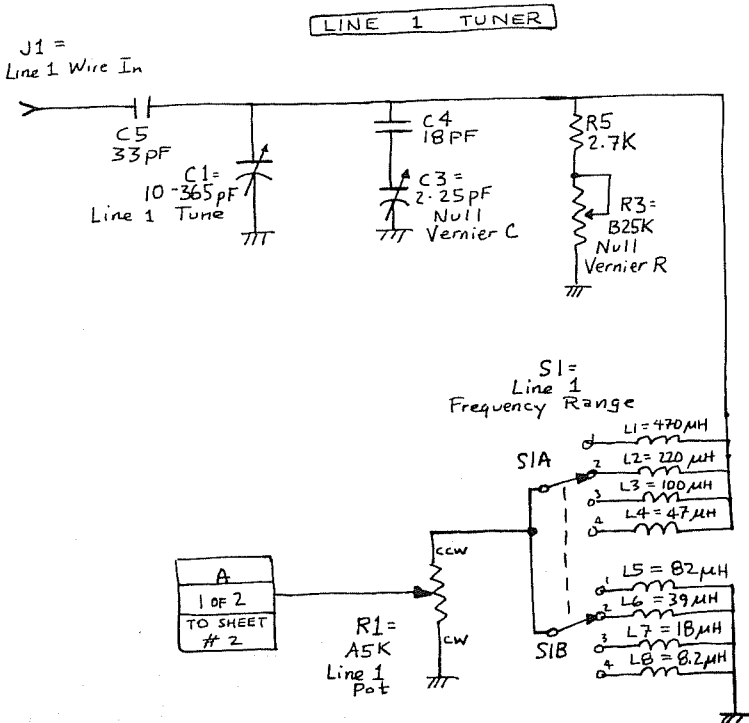 LINE 1 TUNER
J1 =
Line 1 Wire In
C5
33pF
C1=
10-365pF
Line 1 Tune
C4
18PF
C3=
2-25pF
Null
Vernier C
R5
2.7K
R3=
B25K
Null
Vernier R
S1=
Line 1
Frequency Range
S1A
1
L1=470µH
2
L2=220µH
3
L3=100µH
4
L4=47µH
1
L5=82µH
2
L6=39µH
3
L7=18µH
4
L8=8.2µH
S1B
CCW
CW
R1=
A5K
Line 1
Pot
A
1 OF 2
TO SHEET
# 2